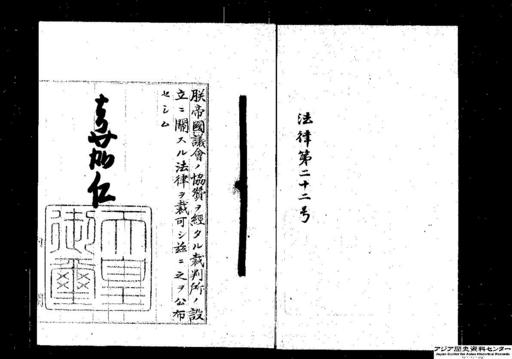 法律第二十二号
朕帝國議會ノ協贊ヲ經タル裁判所ノ設
立ニ關スル法律ヲ裁可シ茲ニ之ヲ公布
セシム
嘉仁
天皇
御璽
アジア歴史資料センター
Japan Center for Asian Historical Records